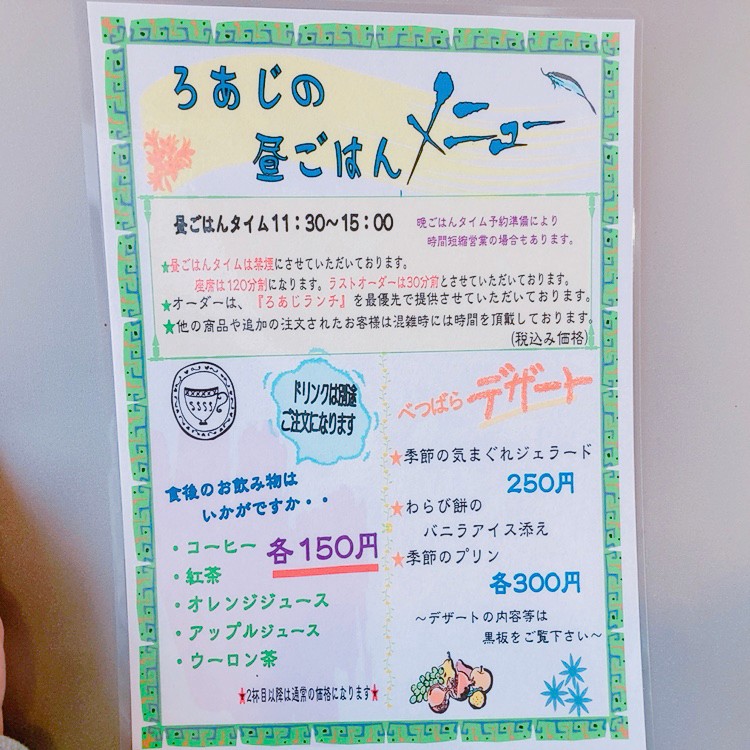 ろあじの
昼ごはんメニュー
昼ごはんタイム11：30〜15：00
晩ごはんタイム予約準備により
時間短縮営業の場合もあります。
★昼ごはんタイムは禁煙にさせていただいております。
座席は120分制になります。ラストオーダーは30分前とさせていただいております。
★オーダーは、『ろあじランチ』を最優先で提供させていただいております。
★他の商品や追加の注文されたお客様は混雑時には時間を頂戴しております。
(税込み価格)
ドリンクは別途
ご注文になります
食後のお飲み物は
いかがですか・・
・コーヒー 各150円
・紅茶
・オレンジジュース
・アップルジュース
・ウーロン茶
★2杯目以降は通常の価格になります★
べつばらデザート
★季節の気まぐれジェラード
250円
★わらび餅の
バニラアイス添え
★季節のプリン
各300円
〜デザートの内容等は
黒板をご覧下さい〜